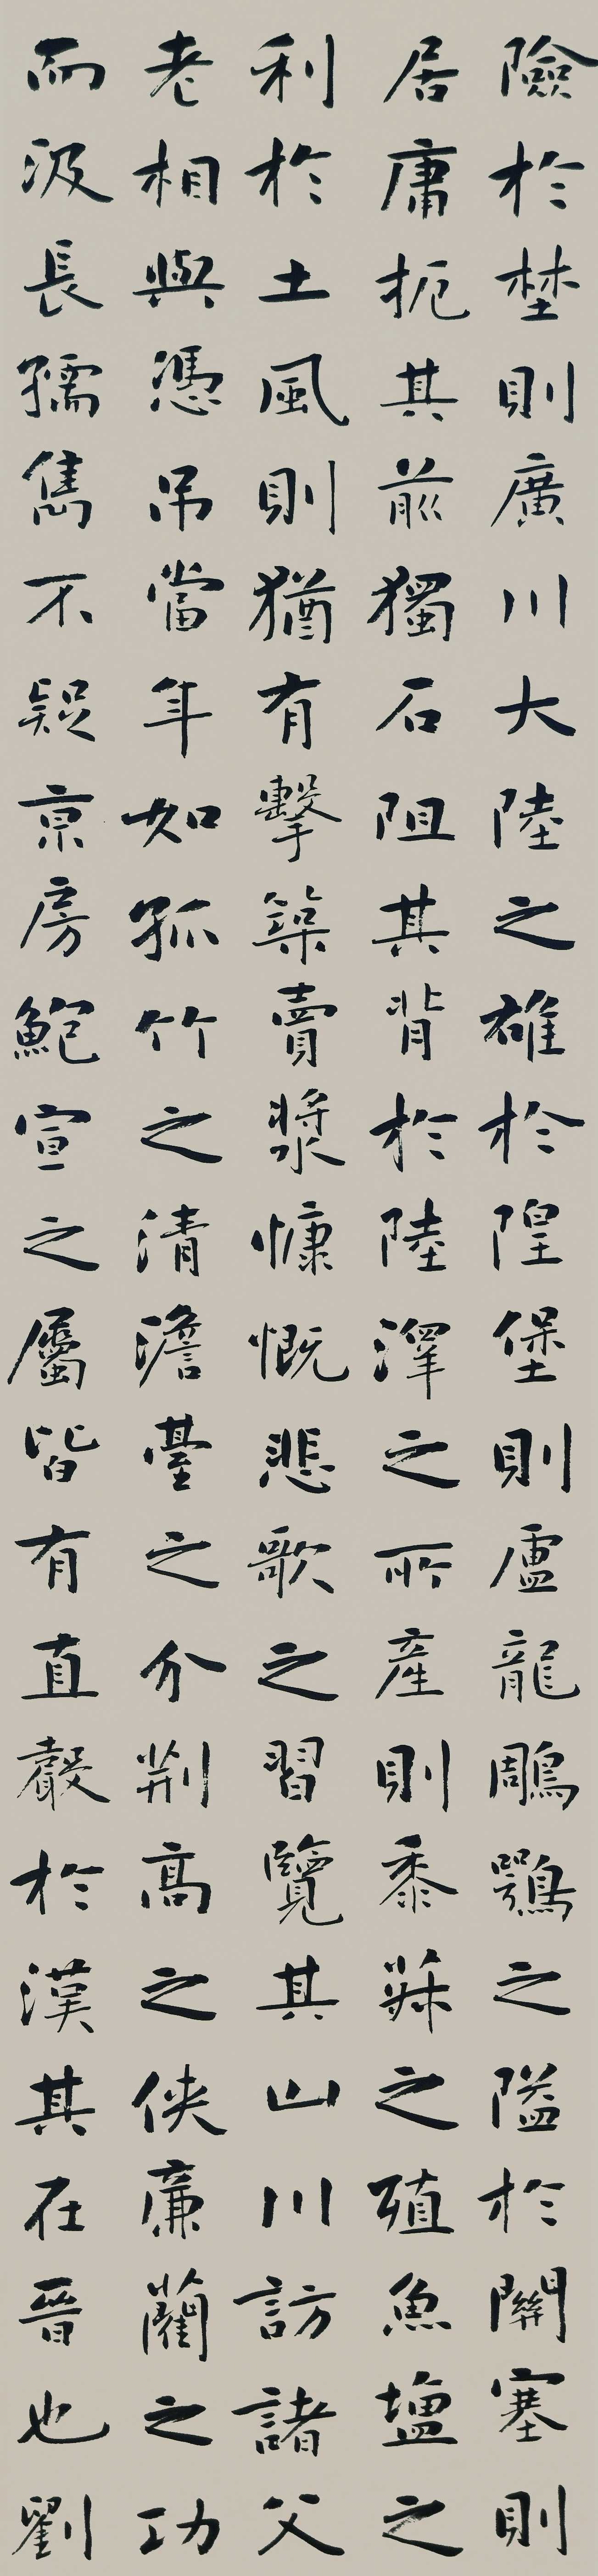 險於埜則廣川大陸之雄於隍堡則盧龍鵰鶚之隘於關塞則
居庸扼其前獨石阻其背於陸澤之所產則黍穄之殖魚鹽之
利於土風則猶有擊築賣漿慷慨悲歌之習覽其山川訪諸父
老相與憑吊當年如孤竹之清澹臺之介荆高之俠廉藺之功
而汲長孺雋不疑京房鮑宣之屬皆有直聲於漢其在晉也劉